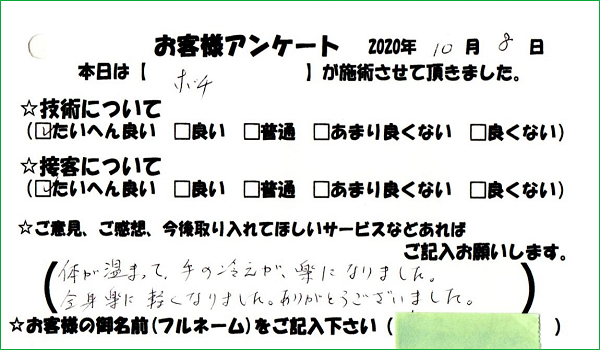 お客様アンケート 2020年 10月 8日
本日は【 ボチ 】が施術させて頂きました。
☆技術について
(☑たいへん良い □良い □普通 □あまり良くない □良くない)
☆接客について
(☑たいへん良い □良い □普通 □あまり良くない □良くない)
☆ご意見、ご感想、今後取り入れてほしいサービスなどあれば
ご記入お願いします。
(体が温まって、手の冷えが、楽になりました。
全身楽に軽くなりました。ありがとうございました。)
☆お客様の御名前(フルネーム)をご記入下さい( )